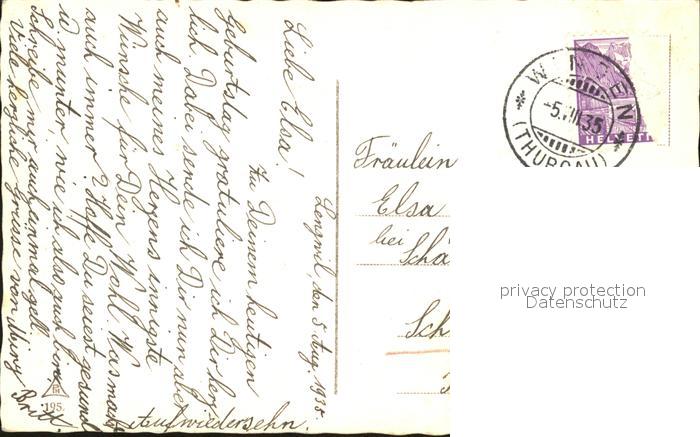 Lengwil, den 5. Aug. 1935.
Liebe Elsa!
Zu Deinem heutigen
Geburtstag gratuliere ich Dir herz
lich. Dabei sende ich Dir nun aber
auch meines Herzens innigste
Wünsche für Dein Wohl. Was macht
auch immer? Hoffe Du seiest gesund
u. munter, wie ich also auch bin,
Schreibe mir auch einmal gell
Viele herzliche Grüsse von
Auf wiedersehn.
Fräulein
Elsa
bei
Schä
Sch
195
-5.VIII.35
(THURGAU)
HELVETI
privacy protection
Datenschutz